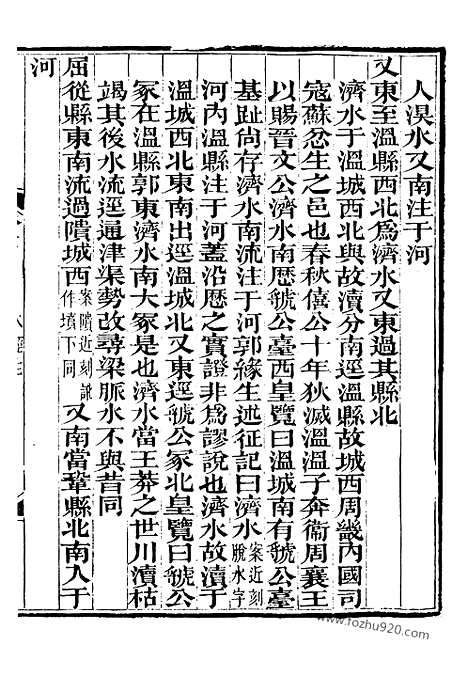 入溴水又南注于河
又東至溫縣西北爲濟水又東過其縣北
濟水于溫城西北與故瀆分南逕溫縣故城西周畿內國司
寇蘇忿生之邑也春秋僖公十年狄滅溫溫子奔衞周襄王
以賜晉文公濟水南歷虢公臺西皇覽曰溫城南有虢公臺
基趾尚存濟水南流注于河郭緣生述征記曰濟水案近刻脫水字
河內溫縣注于河蓋沿歷之實證非爲謬說也濟水故瀆于
溫城西北東南出逕溫城北又東逕虢公冢北皇覽曰虢公
冢在溫縣郭東濟水南大冢是也濟水當王莽之世川瀆枯
竭其後水流逕通津渠勢改尋梁脈水不與昔同
屈從縣東南流過隤城西案隤近刻訛作墳下同又南當鞏縣北南入于
河
www.fozhu920.com